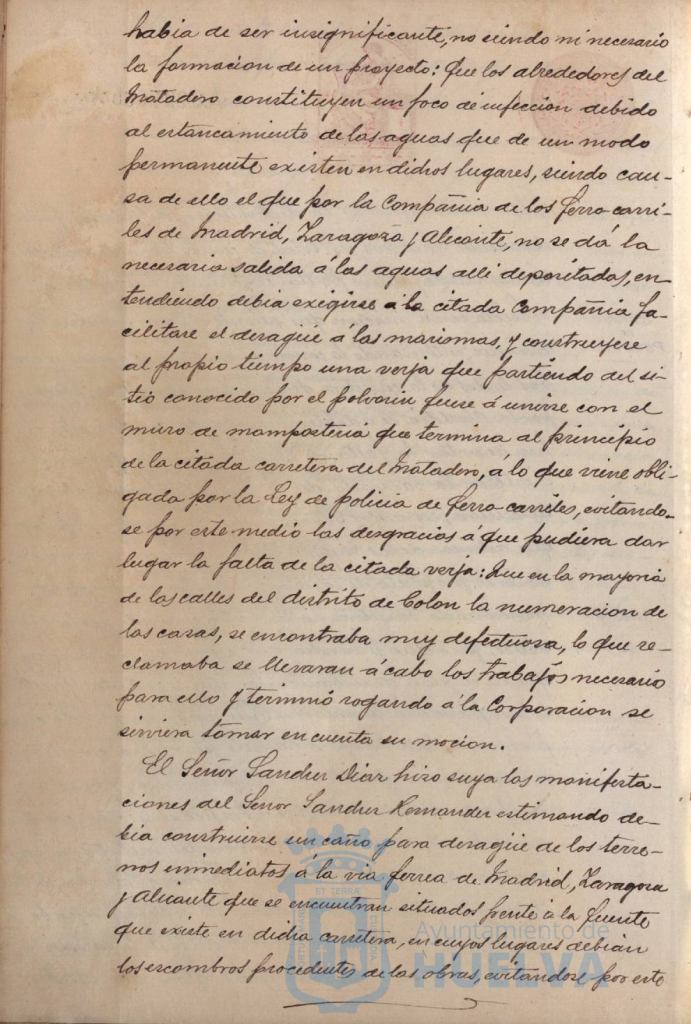 habia de ser insignificante, no siendo ni necesario
la formacion de un proyecto: Que los alrededores del
Matadero constituyen un foco de infeccion debido
al estancamiento de las aguas que de un modo
permanente existen en dichos lugares, siendo cau-
sa de ello el que por la Compañia de los Ferro-carri-
les de Madrid, Zaragoza y Alicante, no se dá la
necesaria salida á las aguas alli depositadas, en-
tendiendo debia exigirse á la citada Compañia fa-
cilitare el desagüe á las marismas, y construyese
al propio tiempo una verja que partiendo del si-
tio conocido por el polvorin fuese á unirse con el
muro de mamposteria que termina al principio
de la citada carretera del Matadero, á lo que viene obli-
gada por la Ley de policia de Ferro-carriles, evitando-
se por este medio las desgracias á que pudiera dar
lugar la falta de la citada verja: Que en la mayoria
de las calles del distrito de Colon la numeracion de
las casas, se encontraba muy defectuosa, lo que re-
clamaba se llevaran á cabo los trabajos necesario
para ello y terminó rogando á la Corporacion se
sirviera tomar en cuenta su mocion.
El Señor Sanchez Diaz hizo suya las manifesta-
ciones del Señor Sanchez Hernandez estimando de-
bia construirse un caño para desagüe de los terre-
nos inmediatos á la via ferrea de Madrid, Zaragoza
y Alicante que se encuentran situados frente á la fuente
que existe en dicha carretera, en cuyos lugares debian
los escombros procedentes de las obras, evitandose por este
ET TERRA
Ayuntamiento de
HUELVA